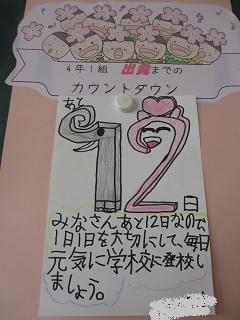 4年1組 出発までの
カウントダウン
あと
12日
みなさんあと12日なので
1日1日を大切にして、毎日
元気に学校に登校し
ましょう。